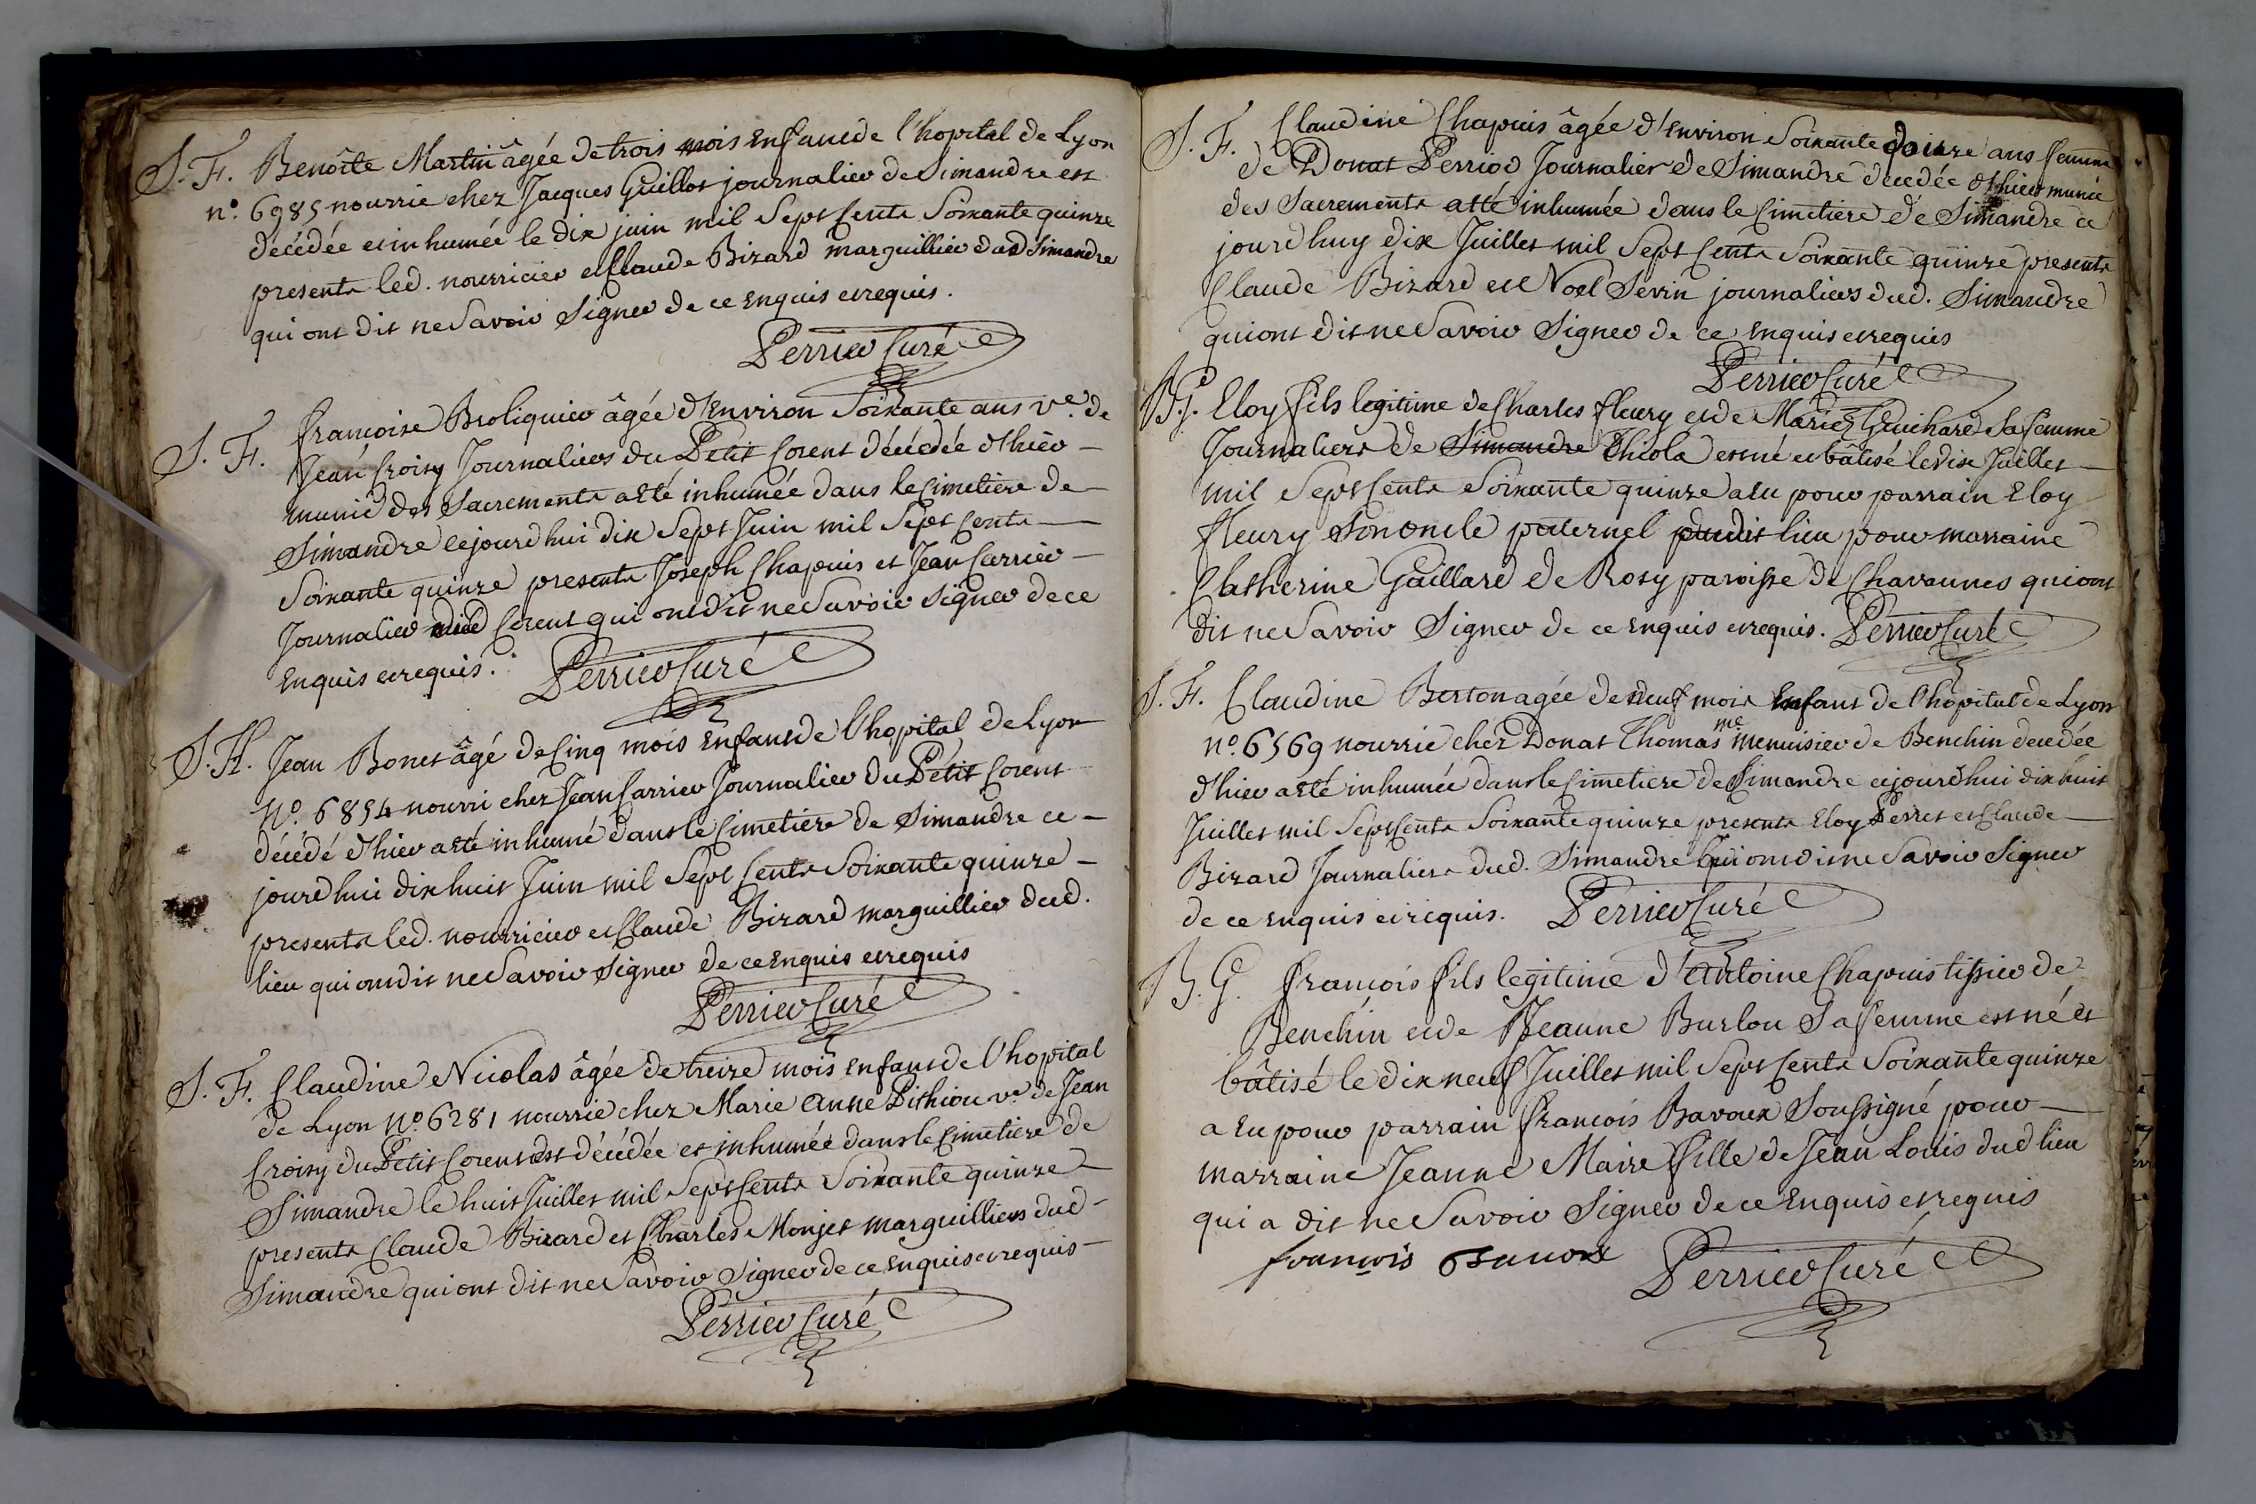 S. F. Benoîte Martin âgée de trois mois enfant de l'hopital de Lyon
n.º 6985 nourrie chez Jacques Guillot journalier de Simandre est
décédée et inhumée le dix juin mil Sept Cents Soixante quinze
presents led. nourricier et Claude Bizard marguillier dud Simandre
qui ont dit ne Savoir Signer de ce enquis et requis.
Perrier Curé
S. F. françoise Broliquier âgée d'Environ Soixante ans v.e de
Jean Croisy Journaliers du Petit Corent décédée d'hièr
munie des Sacrements a eté inhumée dans le Cimetière de
Simandre cejourd'hui dix Sept Juin mil Sept Cents
Soixante quinze presents Joseph Chapuis et Jean Carrier
Journalier dud Corent qui ont dit ne Savoir Signer de ce
enquis et requis. Perrier Curé
S. H. Jean Bonet âgé de Cinq mois Enfant de l'hopital de Lyon
N.º 6854 nourri chez Jean Carrier Journalier du Petit Corent
décédé d'hier a eté inhumé dans le Cimetière de Simandre ce
jourd'hui dix huit Juin mil Sept Cents Soixante quinze
presents led. nourricier et Claude Bizard marguillier dud.
lieu qui ont dit ne Savoir Signer de ce Enquis et requis
Perrier Curé
S. F. Claudine Nicolas âgée de treize mois enfant de l'hopital
de Lyon N.º 6281 nourrie chez Marie Anne Pithiou v.e de Jean
Croisy du Petit Corent est décédée et inhumée dans le Cimetiere de
Simandre le huit Juillet mil Sept Cents Soixante quinze
presents Claude Bizard et Charles Monjet marguilliers dud
Simandre qui ont dit ne Savoir Signer de ce enquis et requis
Perrier Curé
S. F. Claudine Chapuis âgée d'Environ Soixante quinze ans femme
de Donat Perriod Journalier de Simandre décédée d'hier munie
des Sacrements a eté inhumée dans le Cimetiere de Simandre ce
jourd'huy dix Juillet mil Sept Cents Soixante quinze presents
Claude Bizard et Noel Sevin journaliers dud. Simandre
qui ont dit ne Savoir Signer de ce enquis et requis
Perrier Curé
B. G. Eloy fils legitime de Charles fleury et de Marie Guichard Sa femme
Journaliers de Simandre Thiola est né et bâtisé le dix Juillet
mil Sept Cents Soixante quinze a eu pour parrain Eloy
fleury Son oncle paternel dudit lieu pour marraine
Catherine Gaillard de Rosy paroisse de Chavannes qui ont
dit ne Savoir Signer de ce enquis et requis. Perrier Curé
S. F. Claudine Berton agée de neuf mois Enfant de l'hopital de Lyon
n.º 6569 nourrie chez Donat Thomas me menuisier de Benchin decedée
d'hier a eté inhumée dans le Cimetiere de Simandre cejourd'hui dix huit
Juillet mil Sept Cents Soixante quinze presents Eloy Perret et Claude
Bizard Journaliers dud. Simandre qui ont dit ne Savoir Signer
de ce enquis et requis. Perrier Curé
B. G. françois fils legitime d'antoine Chapuis tissier de
Benchin et de Jeanne Burlon Sa femme est né et
bâtisé le dix neuf Juillet mil Sept Cents Soixante quinze
a eu pour parrain françois Bavoux Soussigné pour
marraine Jeanne Maire fille de Jean Louis dud lieu
qui a dit ne Savoir Signer de ce Enquis et requis
françois Bauoux Perrier Curé